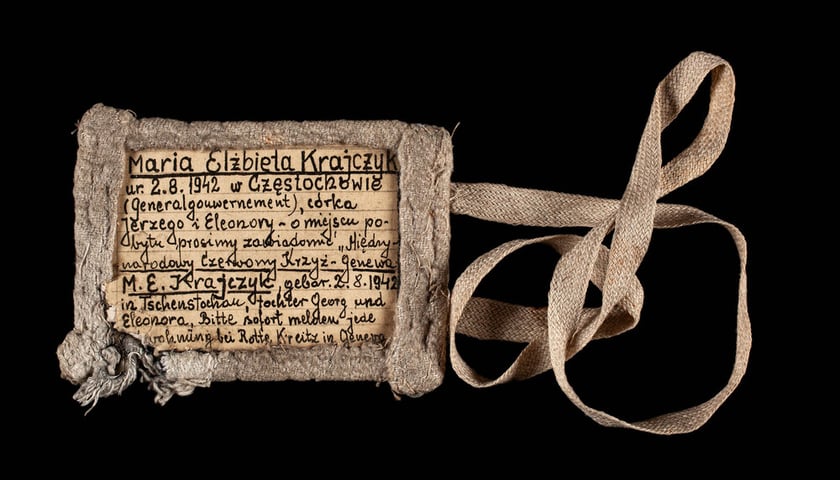 Maria Elżbieta Krajczyk
ur. 2.8.1942 w Częstochowie
(Generalgouwernement), córka
Jerzego i Eleonory - o miejscu po-
bytu prosimy zawiadomić „Między-
narodowy Czerwony Krzyż - Genewa
M. E. Krajczyk, gebor. 2.8.1942
in Tschenstochau, Tochter Georg und
Eleonora, Bitte sofort melden jede
bei Rotte, Kreitz in Geneva